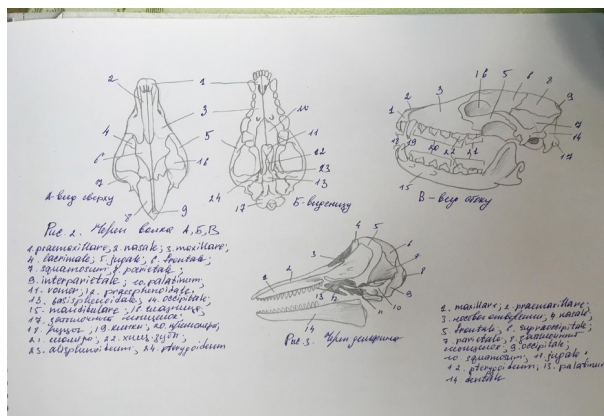 А-вид сверху
Б-вид снизу
В-вид сбоку
Рис. 2. Череп волка А, Б, В
1. praemaxillare; 2. nasale; 3. maxillare;
4. lacrimale; 5. jugale; 6. frontale;
7. squamosum; 8. parietale;
9. interparietale; 10. palatinum;
11. vomer; 12. praesphenoidale;
13. basisphenoidale; 14. occipitale;
15. mandibulare; 16. глазница
17. затылочный мыщелок;
18. резцы; 19. клыки; 20. премоляры;
21. моляры; 22. хищ. зуб;
23. alisphenoideum; 24. pterygoideum
Рис 3. Череп дельфина
1. maxillare; 2. praemaxillare;
3. носовое отверстие; 4. nasale;
5. frontale; 6. supraoccipitale;
7. parietale; 8. затылочный
мыщелок; 9. occipitale;
10. squamosum; 11. jugale;
12. pterygoideum; 13. palatinum
14. dentale